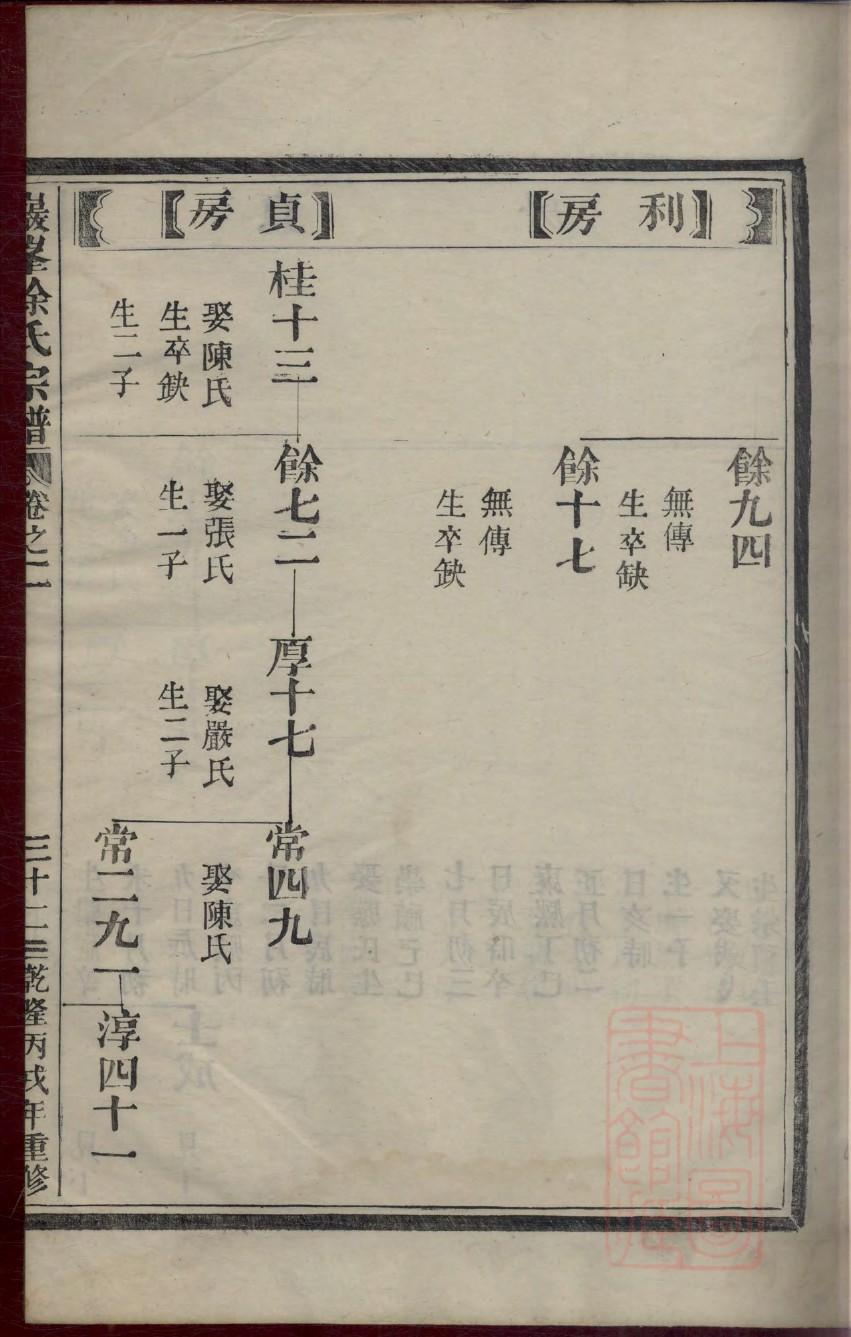 【利房】
餘九四
無傳
生卒缺
餘十七
無傳
生卒缺
【貞房】
桂十三
娶陳氏
生卒缺
生二子
餘七二
娶張氏
生一子
厚十七
娶嚴氏
生二子
常四九
娶陳氏
常二九
淳四十一
巖峯徐氏宗譜
卷之二
三十二
乾隆丙戌年重修
上海圖書館藏